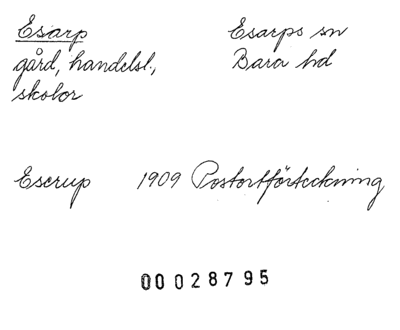 Esarp Esarps sn
gård, handelsl., Bara hd
skolor
Eserup 1909 Postortförteckning
00028795